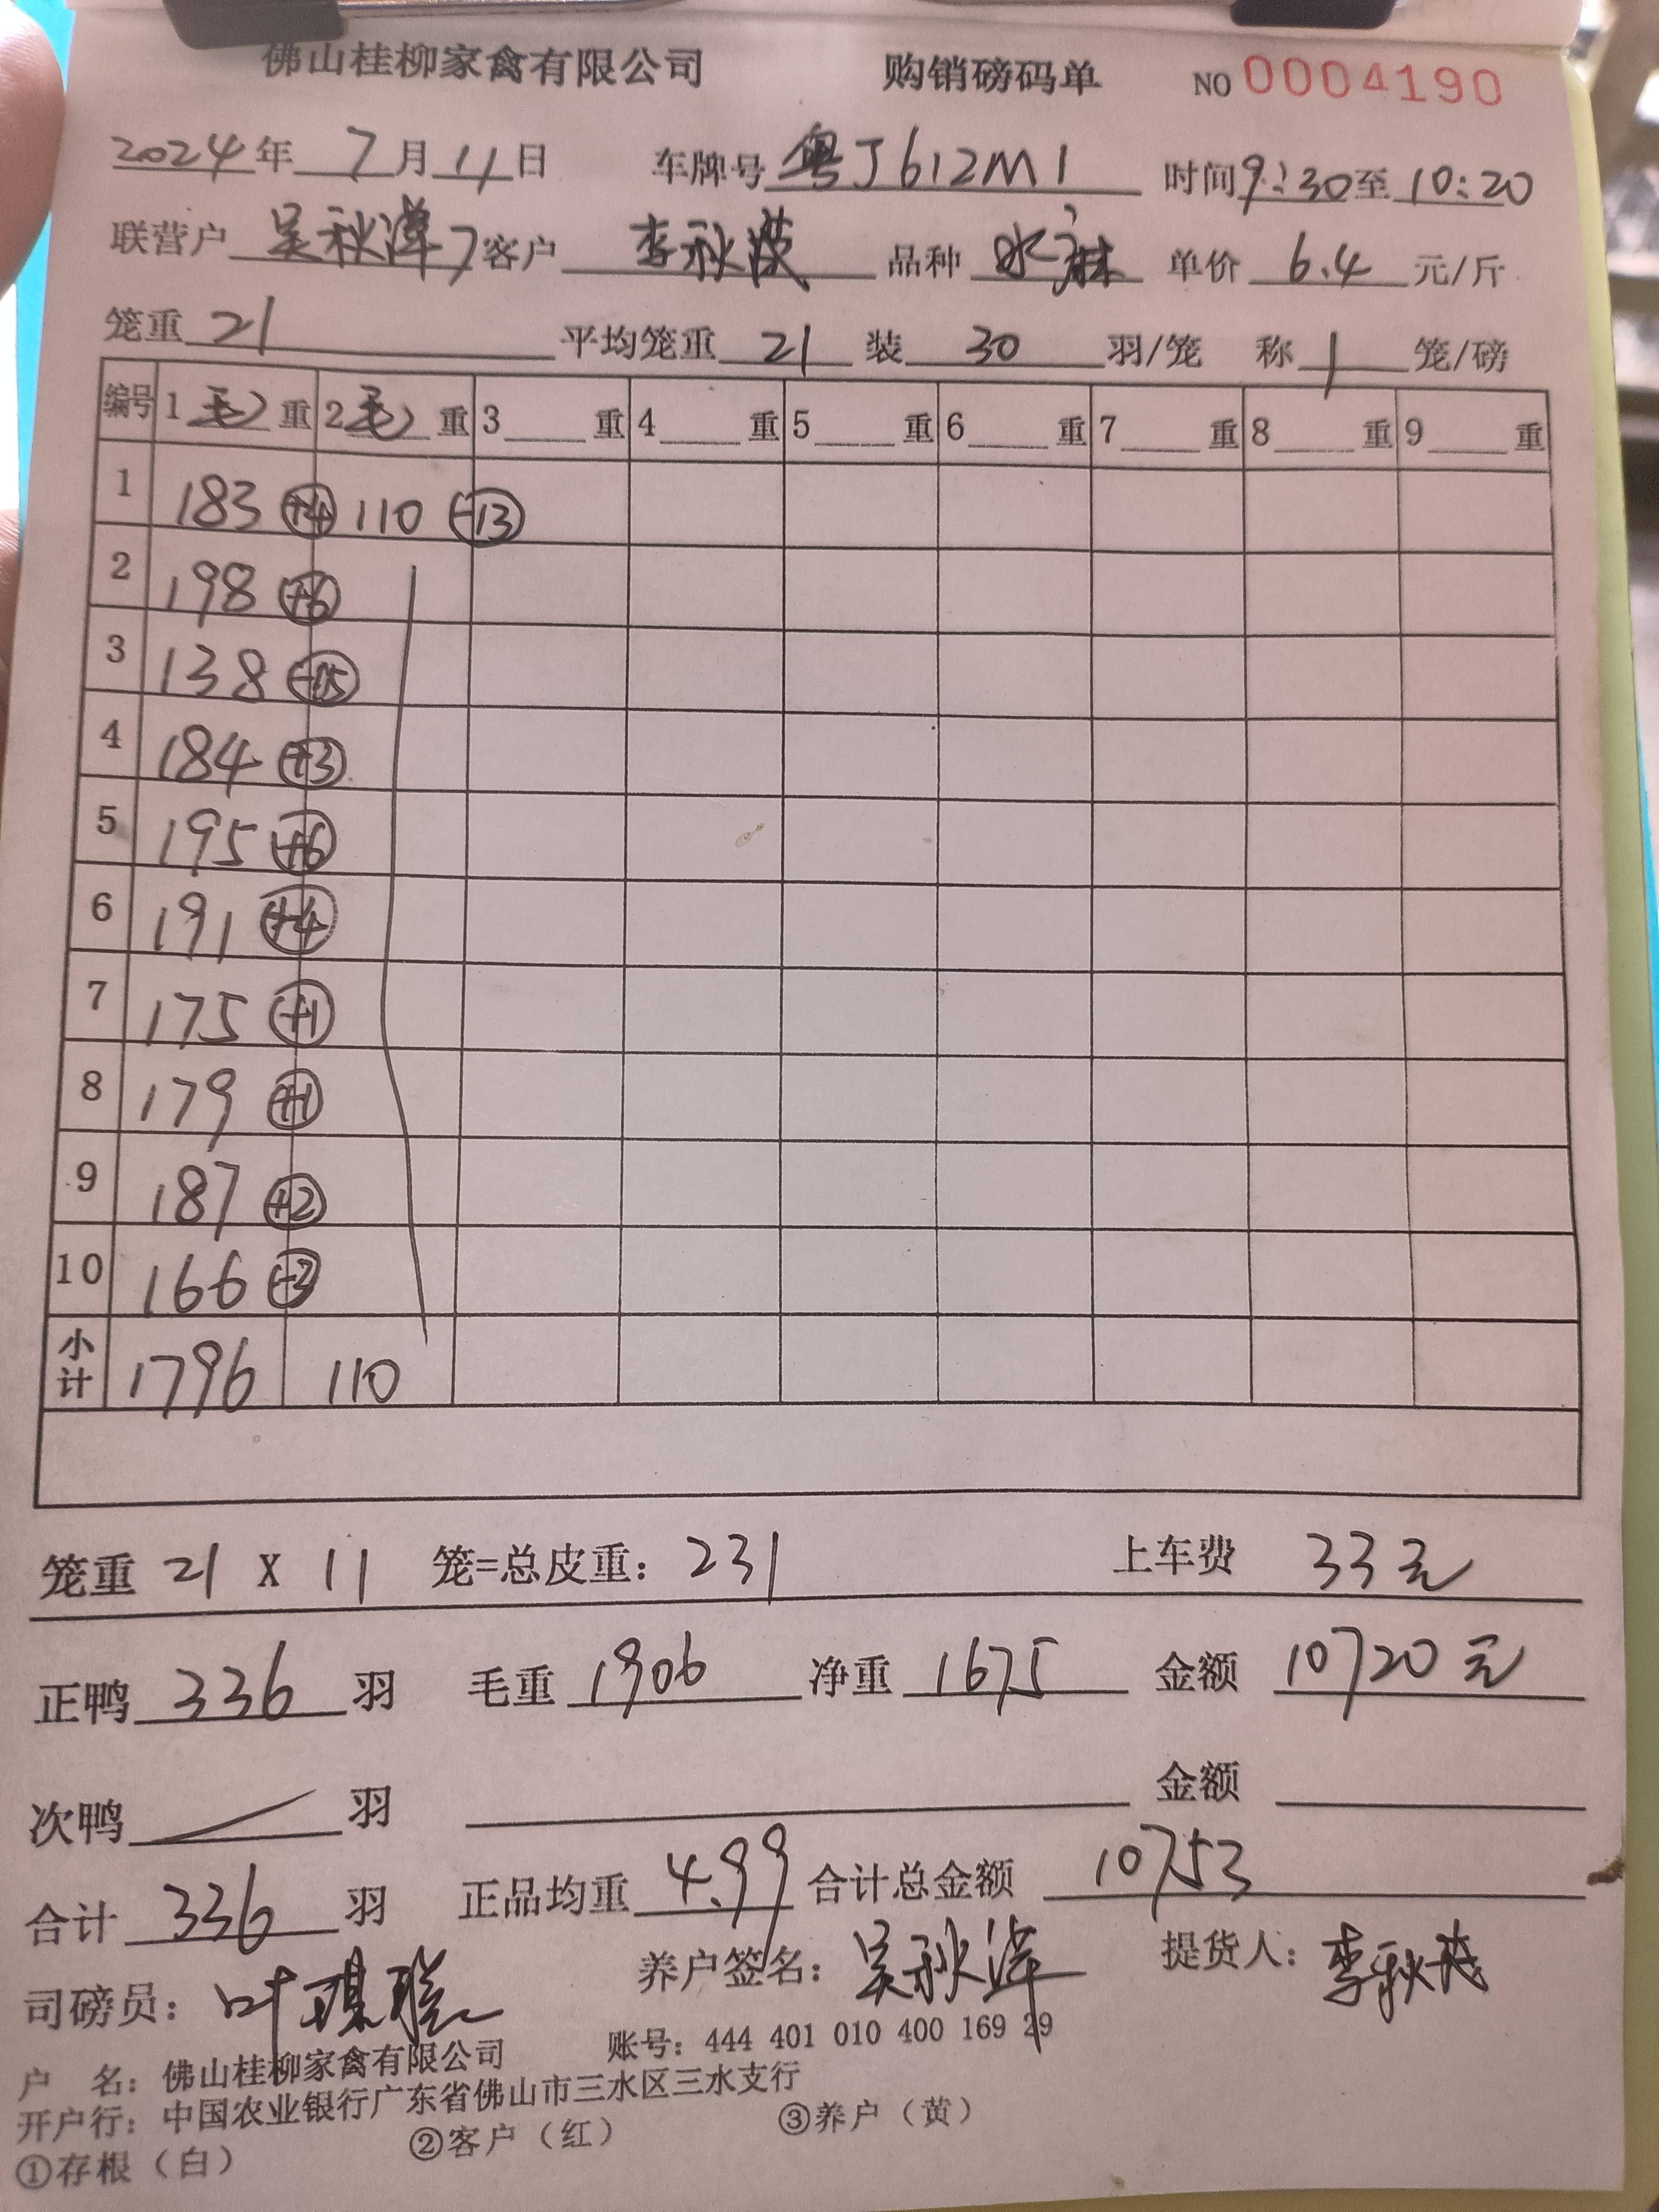 佛山桂柳家禽有限公司 购销磅码单 NO 0004190
2024年 7月 11日 车牌号 粤J612M1 时间 9:30至 10:20
联营户 吴秋潭7 客户 李秋茂 品种 水麻 单价 6.4 元/斤
笼重 21 平均笼重 21 装 30 羽/笼 称 1 笼/磅
编号 1 毛 重 2 毛 重 3 重 4 重 5 重 6 重 7 重 8 重 9 重
1 183 +4 110 -13
2 198 +6
3 138 -05
4 184 +3
5 195 +6
6 191 +4
7 175 +1
8 179 +1
9 187 +2
10 166 -3
小计 1796 110
笼重 21 X 11 笼=总皮重: 231 上车费 33元
正鸭 336 羽 毛重 1906 净重 1675 金额 10720元
次鸭 羽 金额
合计 336 羽 正品均重 4.99 合计总金额 10753
司磅员: 叶 养户签名: 吴秋潭 提货人: 李秋茂
户 名: 佛山桂柳家禽有限公司 账号: 444 401 010 400 169 29
开户行: 中国农业银行广东省佛山市三水区三水支行
①存根（白） ②客户（红） ③养户（黄）